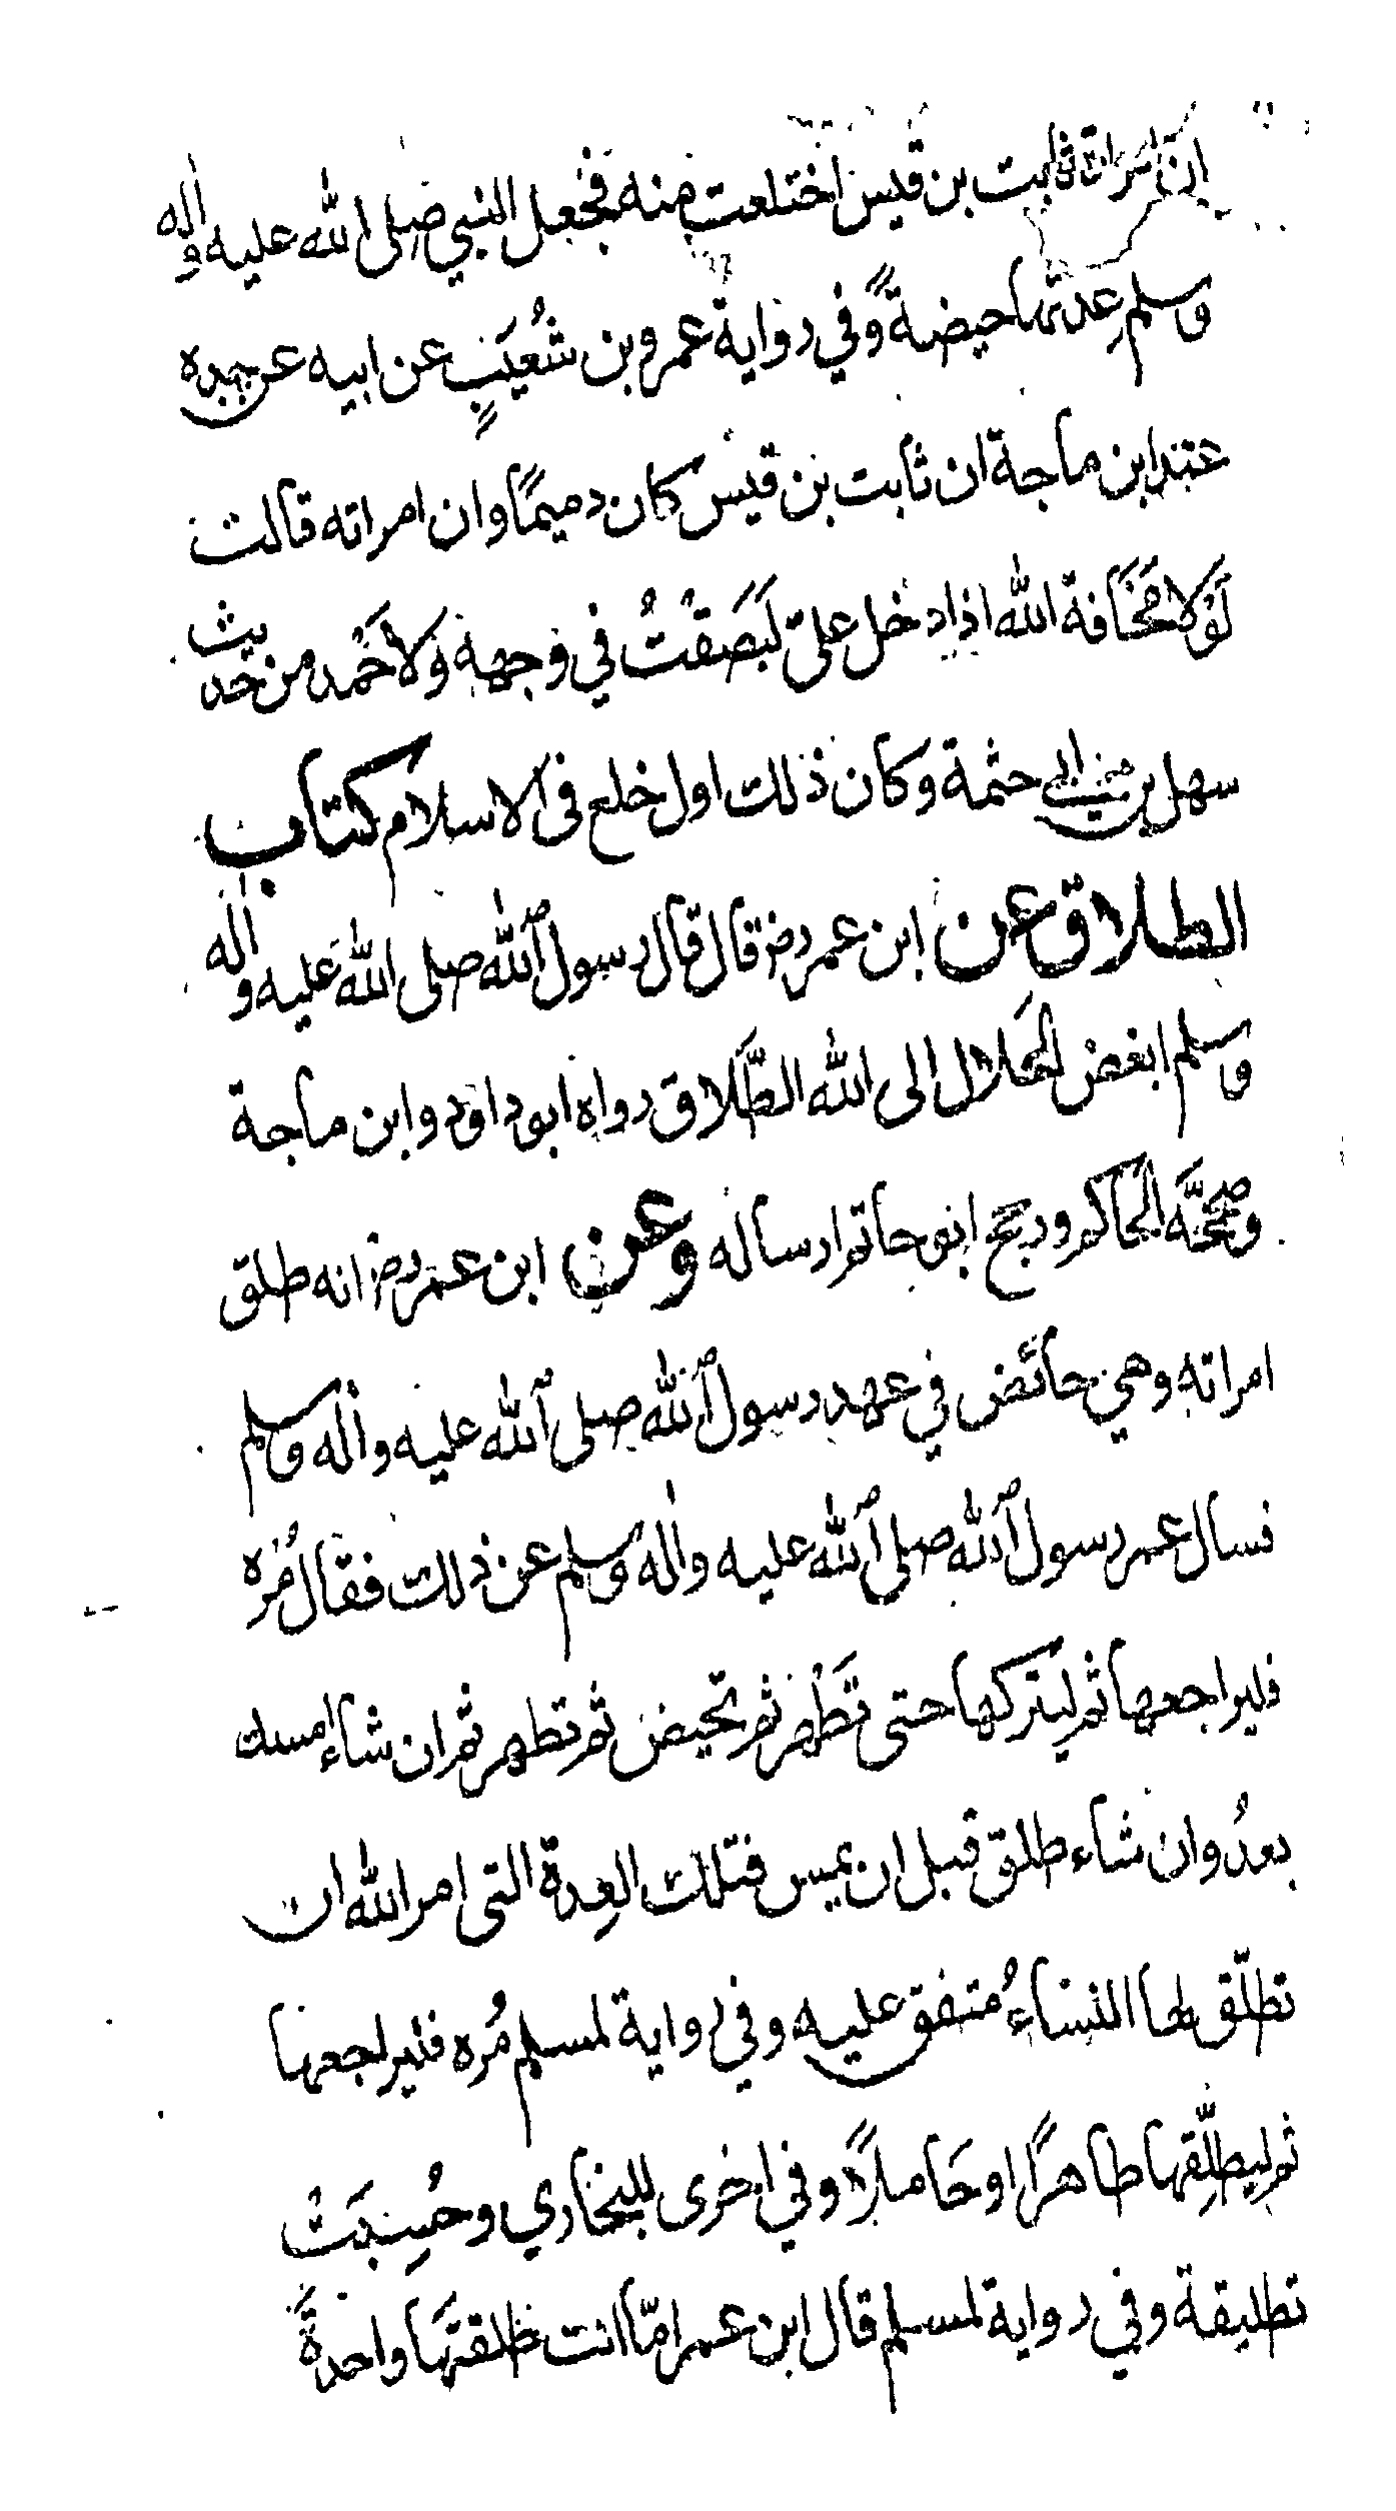 ان امراة ثابت بن قيس اختلعت منه فجعل النبي صلى الله عليه واله
وسلم عدتها حيضةً وفي رواية عمرو بن شُعَيبٍ عن ابيه عن جده
عند ابن ماجة ان ثابت بن قيس كان دميمًا وان امراته قالت
لَوْلا مَخَافة الله اذا دخل علىّ لَبَصَقْتُ في وجهه ولاحْمد من حديث
سهل بن ابي حثمة وكان ذلك اول خلع فى الاسلام كتاب
الطلاق عن ابن عمر رض قال قال رسول الله صلى الله عليه واله
وسلم ابغض الحَلال الى الله الطَّلاق رواه ابو داود وابن ماجة
وصحَّحَه الحاكم ورجح ابو حاتم ارساله وعن ابن عمر رض انه طلق
امراته وهي حائض في عهد رسول الله صلى الله عليه واله وسلم
فسال عمر رسول الله صلى الله عليه واله وسلم عن ذلك فقال مُرْه
فليراجعها ثم ليتركها حتى تَطْهر ثم تحيض ثم تطهر ثم ان شاء امسك
بعدُ وان شاء طلق قبل ان يمس فتلك العِدة التى امر الله ان
تطلّق لها النساءُ متفق عليه وفي رواية لمسلم مُره فليراجعها
ثم ليطلّقِها طاهرًا او حَاملًا وفي اخرى للبخاري وحُسِبَتْ
تطليقة وفي رواية لمسلم قال ابن عمر امّا انت طلقتَها واحدةً